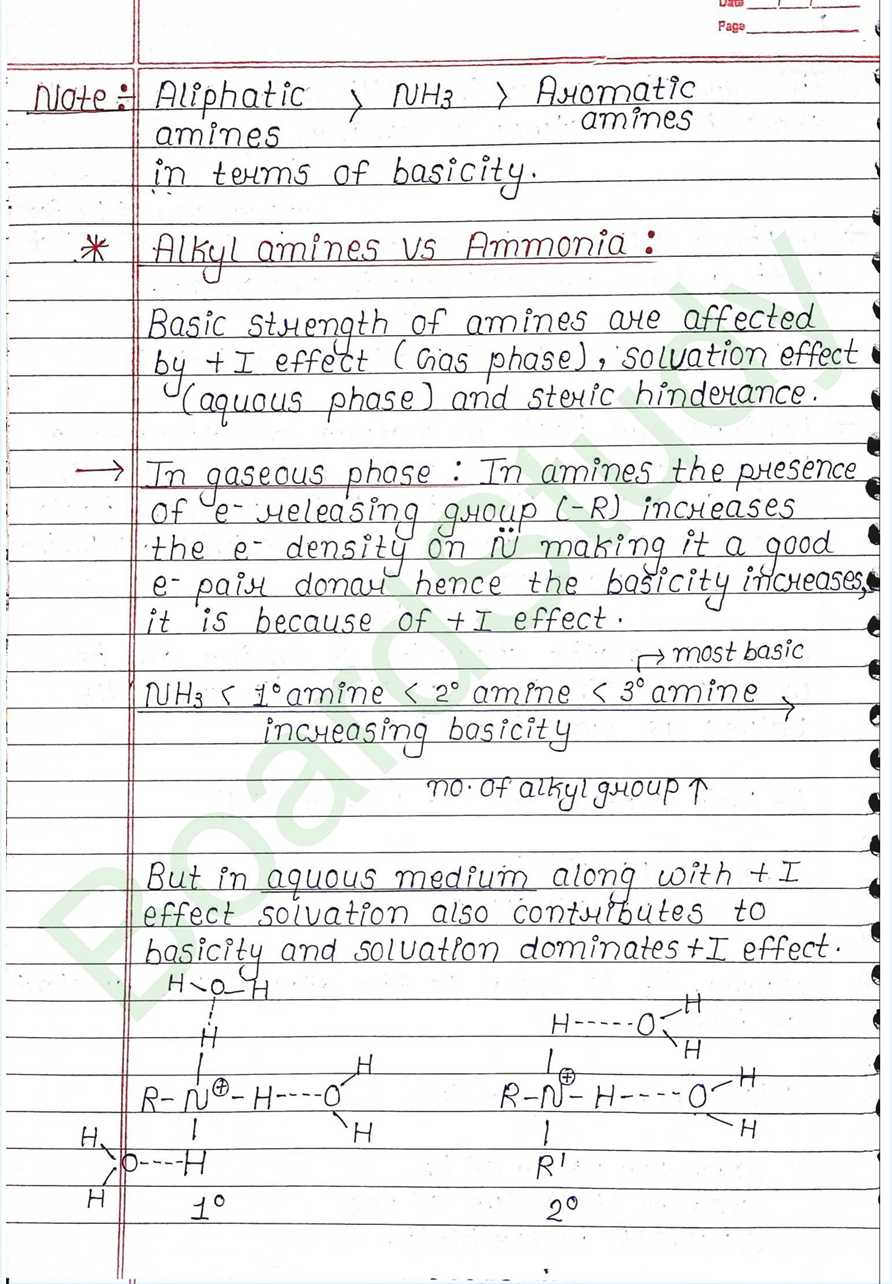 Date
Page
Note ÷ Aliphatic > NH3 > Aromatic
amines amines
in terms of basicity.
* Alkyl amines vs Ammonia :
Basic strength of amines are affected
by +I effect (Gas phase), solvation effect
(aquous phase) and steric hinderance.
→ In gaseous phase : In amines the presence
of e- releasing group (-R) increases
the e- density on N̈ making it a good
e- pair donar hence the basicity increases,
it is because of +I effect.
→ most basic
NH3 < 1° amine < 2° amine < 3° amine
increasing basicity
no. of alkyl group ↑
But in aquous medium along with +I
effect solvation also contributes to
basicity and solvation dominates +I effect.
H O H
H H O H
H H
R-N⊕-H----O H R-N⊕-H----O H
H H
H O----H R'
H
1° 2°
BoardStudy